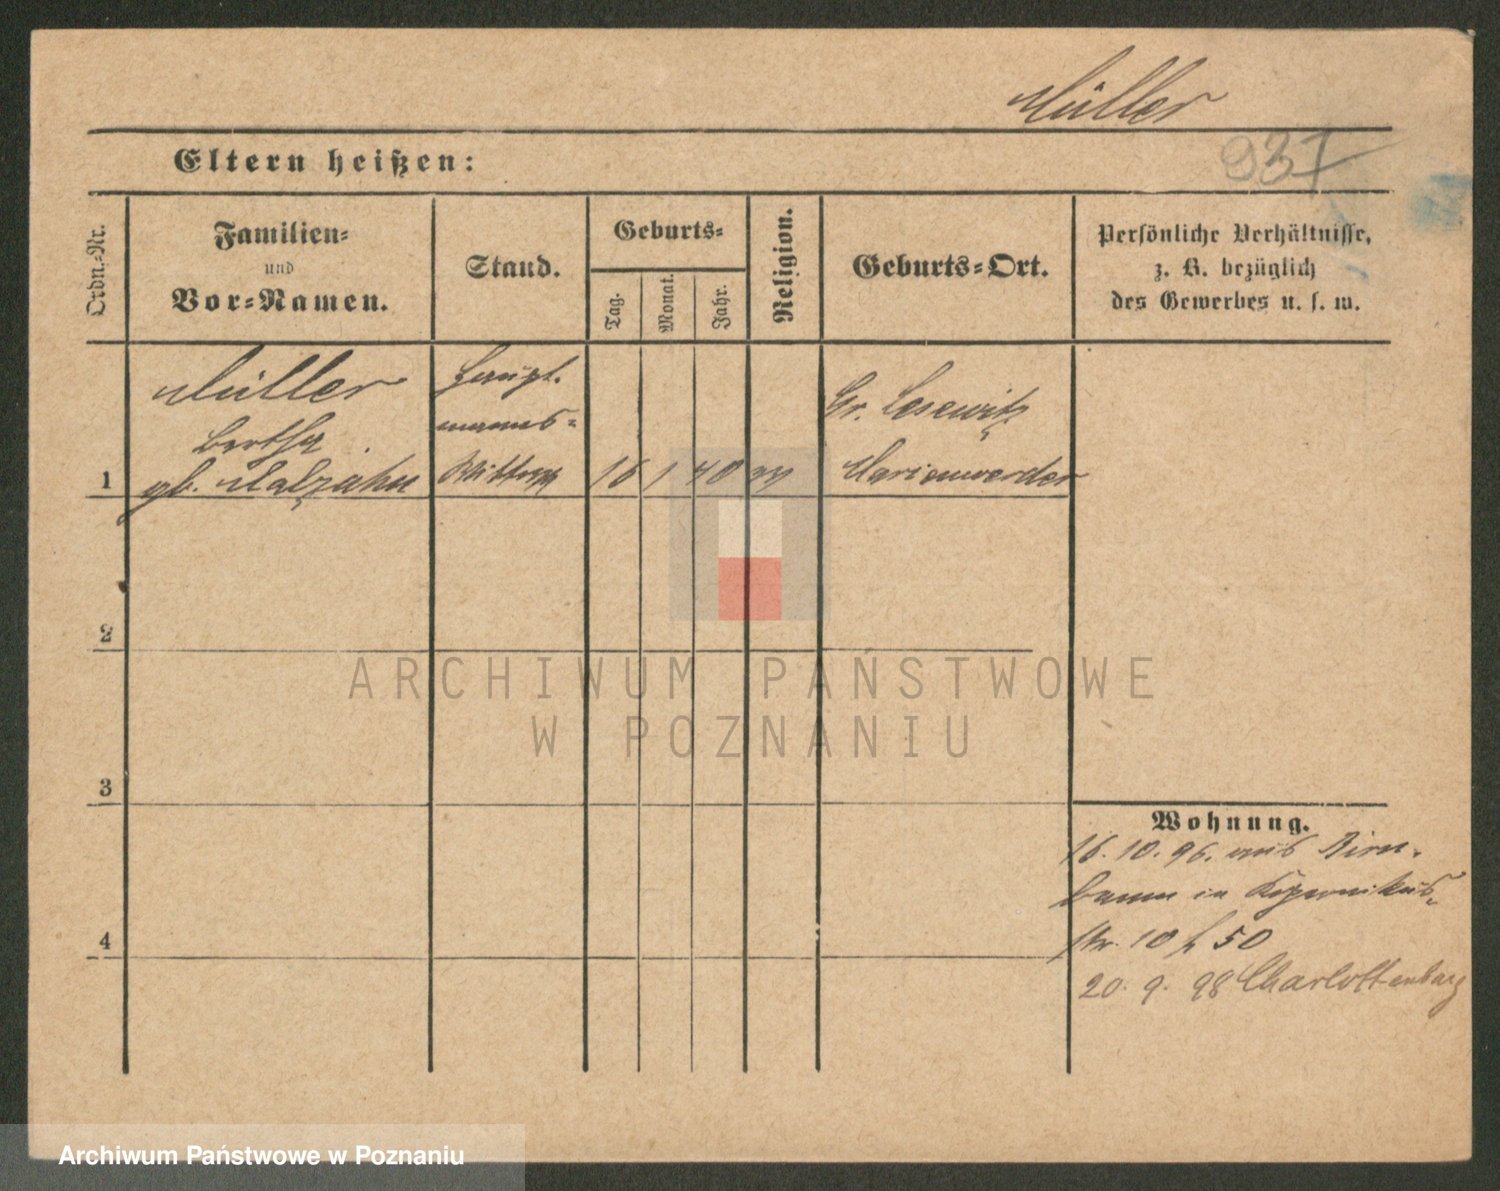 Müller
937
Eltern heißen:
Ordn.-Nr.
Familien-
und
Vor-Namen.
Stand.
Geburts-
Tag.
Monat.
Jahr.
Religion.
Geburts-Ort.
Persönliche Verhältnisse,
z. B. bezüglich
des Gewerbes u. s. w.
Müller
Bertha
gb. Malzahn
Haupt-
manns-
Wittwe
16 1 40
Gr. Lesewitz
Marienwerder
1
2
3
4
Wohnung.
16.10.96. aus Birn-
baum in Kopernikus-
str. 10 h 50
20. 9. 98 Charlottenburg
ARCHIWUM PAŃSTWOWE
W POZNANIU
Archiwum Państwowe w Poznaniu